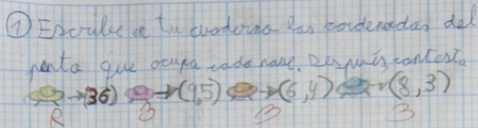 ① Escribe en tu cuaderno las cordenadas del
punto que ocupa cada nave. Después contesta
→(36) →(9,5) →(6,4) →(8,3)
R B B B